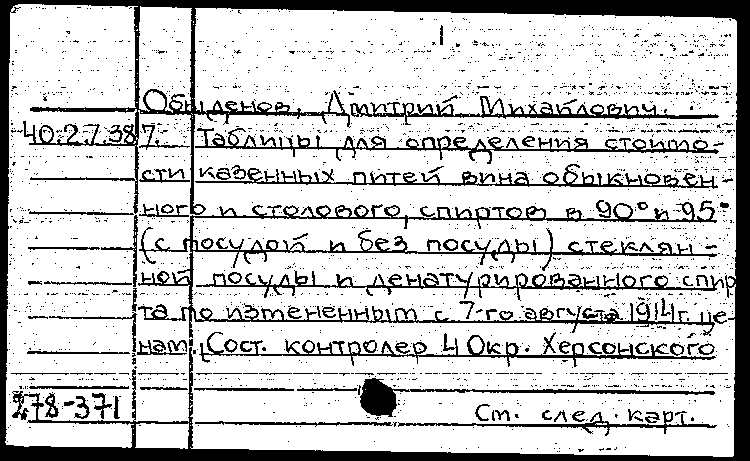 1.
Обыденов, Дмитрий Михайлович.
40.2.7.387. Таблицы для определения стоимо-
сти казенных питей вина обыкновен-
ного и столового, спиртов в 90° и 95°
(с посудой и без посуды) стеклян-
ной посуды и денатурированного спир
та по измененным с 7-го августа 1914г. це-
нам. Сост. контролер 4 Окр. Херсонского
278-371
См. след. карт.